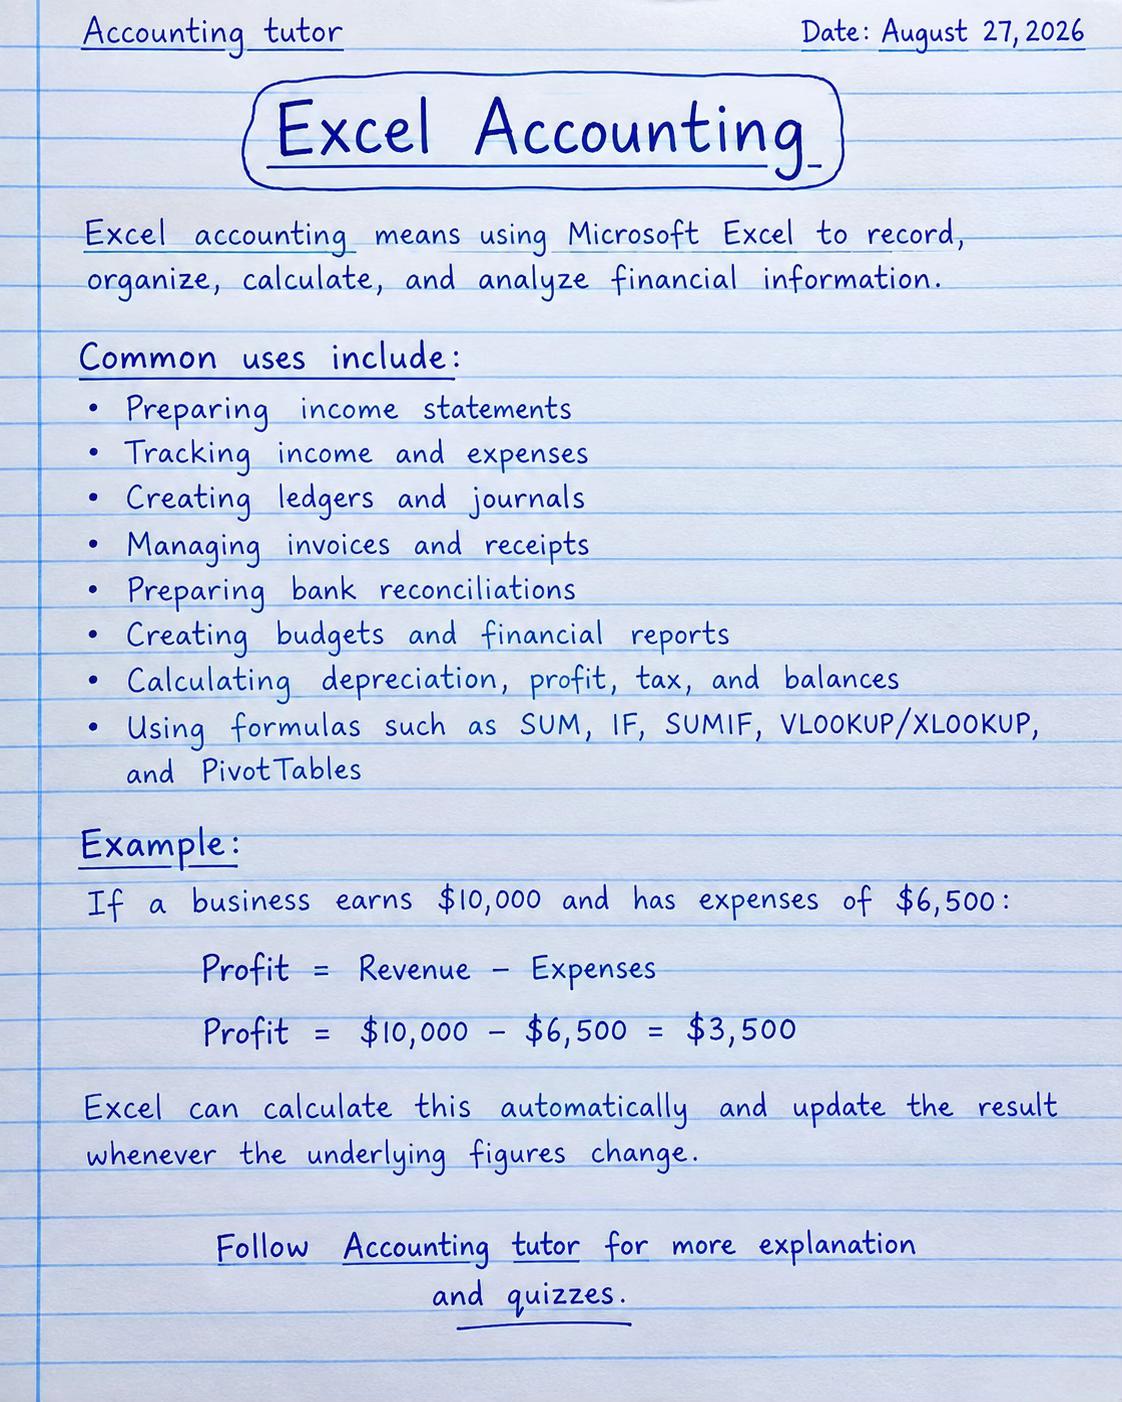 Accounting tutor
Date: August 27, 2026
Excel Accounting
Excel accounting means using Microsoft Excel to record,
organize, calculate, and analyze financial information.
Common uses include:
• Preparing income statements
• Tracking income and expenses
• Creating ledgers and journals
• Managing invoices and receipts
• Preparing bank reconciliations
• Creating budgets and financial reports
• Calculating depreciation, profit, tax, and balances
• Using formulas such as SUM, IF, SUMIF, VLOOKUP/XLOOKUP,
and PivotTables
Example:
If a business earns $10,000 and has expenses of $6,500:
Profit = Revenue − Expenses
Profit = $10,000 − $6,500 = $3,500
Excel can calculate this automatically and update the result
whenever the underlying figures change.
Follow Accounting tutor for more explanation
and quizzes.